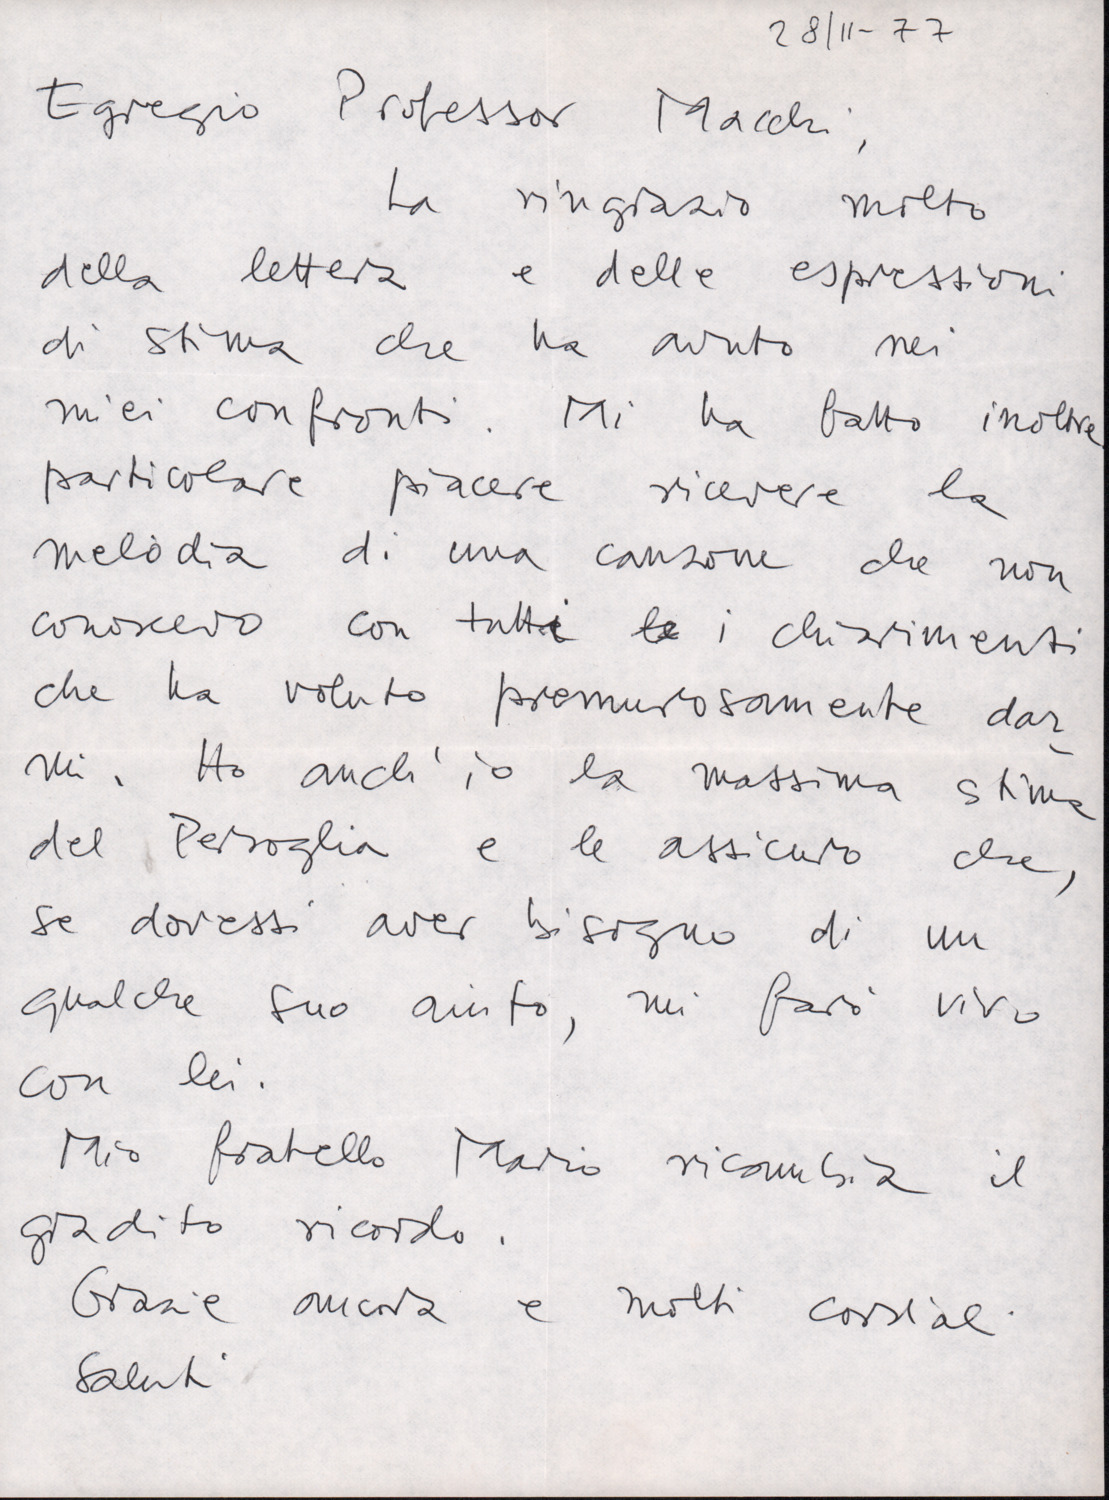 28/11-77
Egregio Professor Macchi,
La ringrazio molto
della lettera e delle espressioni
di stima che ha avuto nei
miei confronti. Mi ha fatto inoltre
particolare piacere ricevere la
melodia di una canzone che non
conoscevo con tutti le i chiarimenti
che ha voluto premurosamente dar
mi. Ho anch'io la massima stima
del Persoglia e le assicuro che,
se dovessi aver bisogno di un
qualche suo aiuto, mi farò vivo
con lei.
Mio fratello Mario ricambia il
gradito ricordo.
Grazie ancora e molti cordiali
saluti